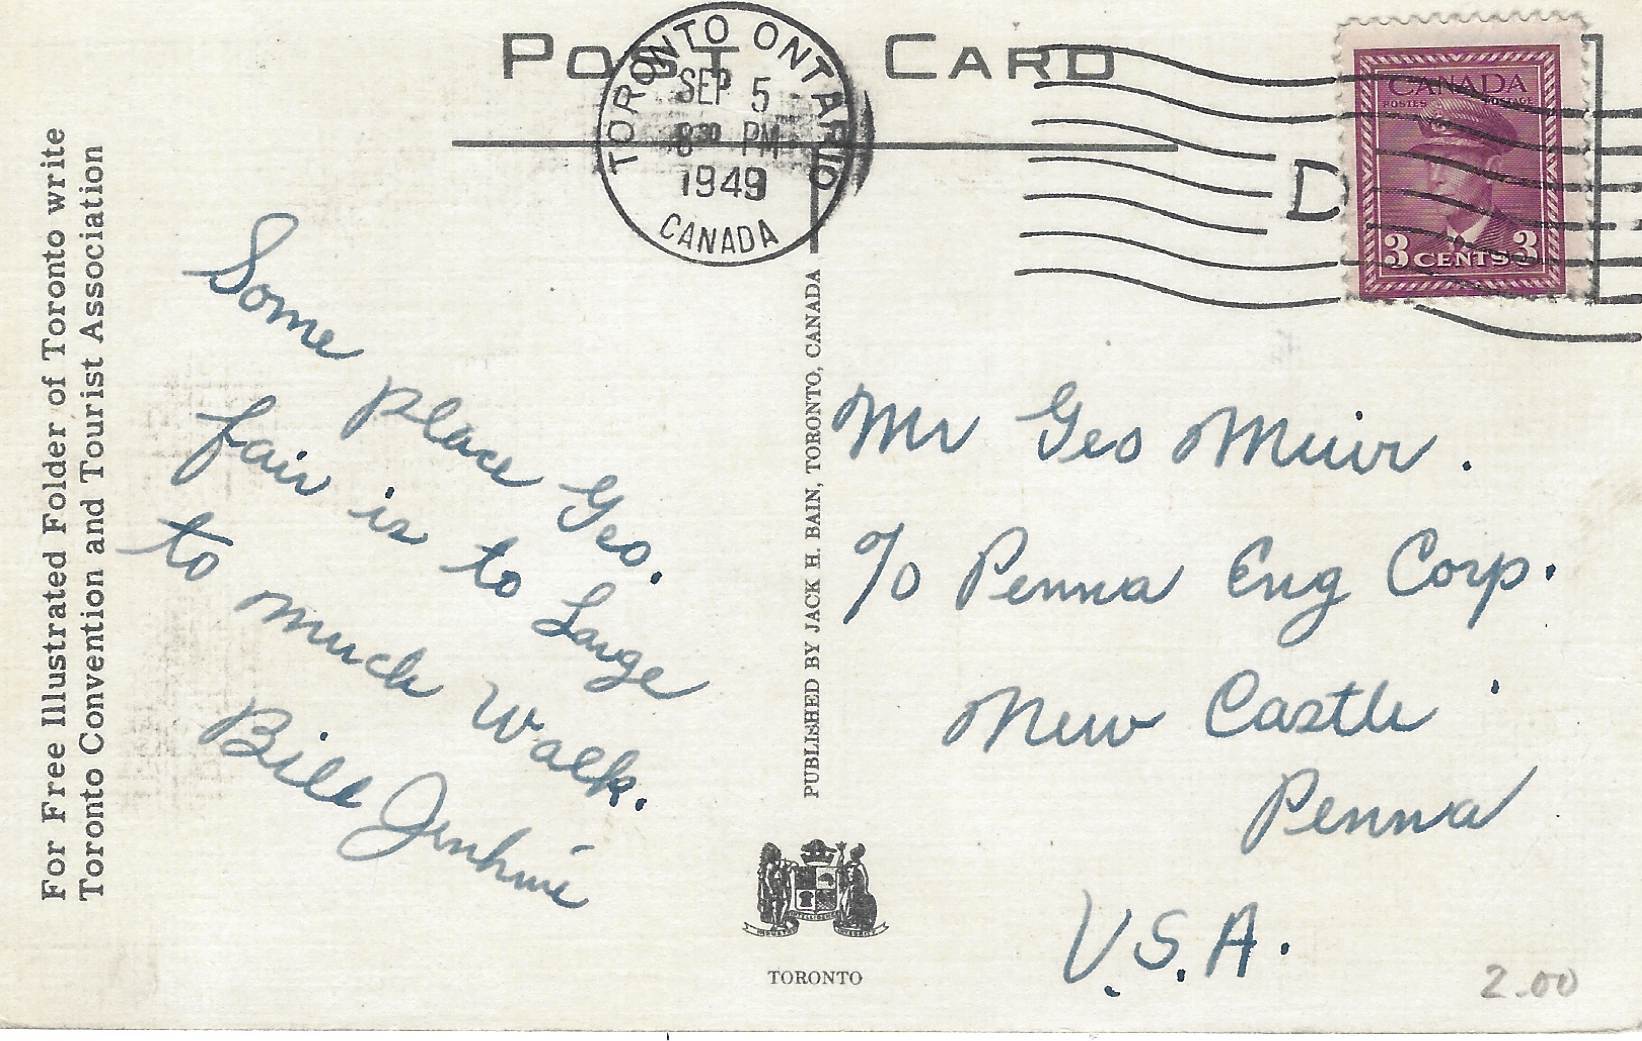 POST CARD
TORONTO ONTARIO
SEP 5
8 30 PM
1949
CANADA
D
CANADA
POSTES POSTAGE
3 CENTS 3
For Free Illustrated Folder of Toronto write
Toronto Convention and Tourist Association
Some place Geo.
fair is to Large
to much walk.
Bill Jenkins
PUBLISHED BY JACK H. BAIN, TORONTO, CANADA
Mr Geo Muir.
c/o Penna Eng Corp.
New Castle
Penna
U.S.A.
TORONTO
2.00